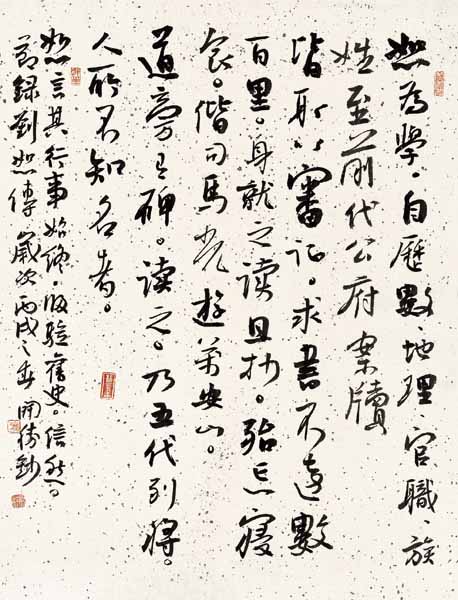 恕為學。自歷數、地理、官職、族
姓至前代公府案牘
皆取以審证。求書不遠數
百里。身就之读且抄。殆忘寝
食。偕司馬光游萬安山。
道旁有碑。读之。乃五代列将。
人所不知名者。
恕言其行事始終。归验舊史。信然。
節録劉恕傳 歲次丙戌之春 開 鈔